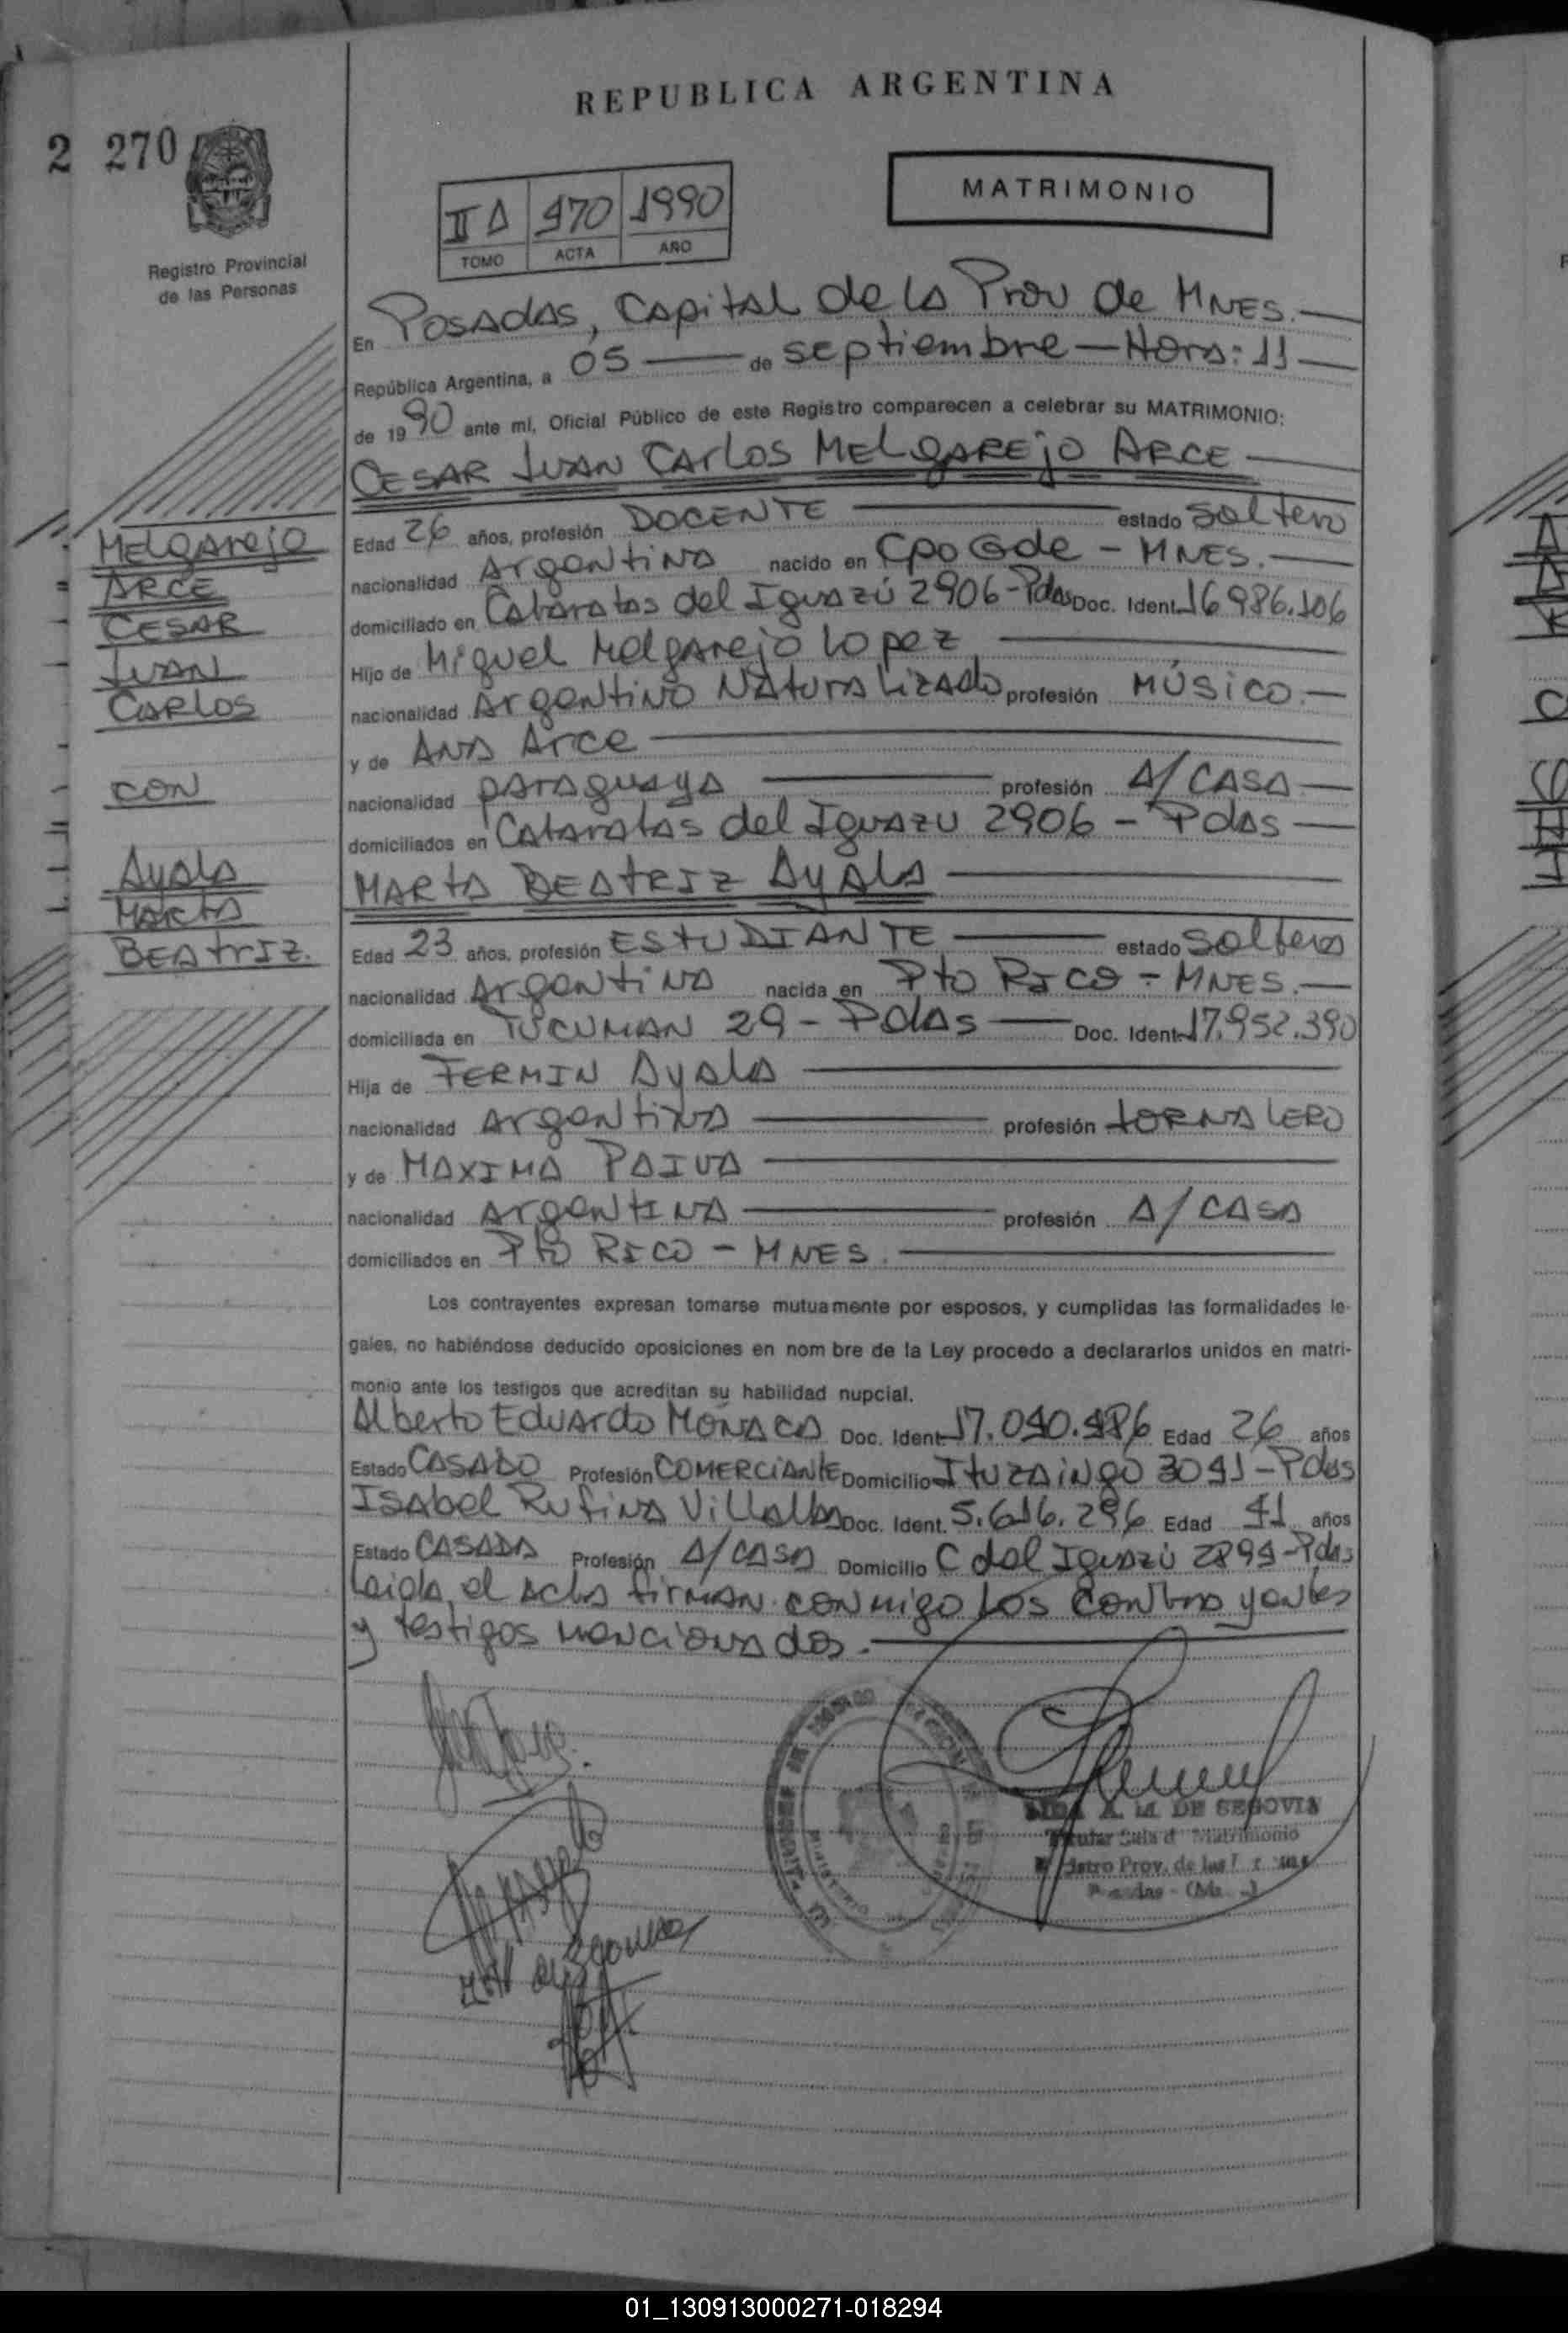 REPUBLICA ARGENTINA
2 270
MATRIMONIO
II A 470 1990
TOMO ACTA AÑO
Registro Provincial
de las Personas
En Posadas, Capital de la Prov de Mnes.
República Argentina, a 05 de septiembre - Hora: 11
de 1990 ante mí, Oficial Público de este Registro comparecen a celebrar su MATRIMONIO:
CESAR JUAN CARLOS MELGAREJO ARCE
Edad 26 años, profesión DOCENTE estado soltero
nacionalidad Argentina nacido en Cpo Gde - MNES.
domiciliado en Cataratas del Iguazú 2906-Pdas Doc. Ident. 16.986.106
Hijo de Miguel Melgarejo Lopez
nacionalidad Argentino Naturalizado profesión MÚSICO.
y de Ana Arce
nacionalidad paraguaya profesión A/CASA
domiciliados en Cataratas del Iguazu 2906 - Pdas
MARTA BEATRIZ AYALA
Edad 23 años, profesión ESTUDIANTE estado soltera
nacionalidad Argentina nacida en Pto RICO - MNES.
domiciliada en TUCUMAN 29 - Pdas Doc. Ident. 17.952.390
Hija de FERMIN AYALA
nacionalidad Argentina profesión JORNALERO
y de MAXIMA PAIVA
nacionalidad Argentina profesión A/CASA
domiciliados en Pto RICO - MNES.
Los contrayentes expresan tomarse mutuamente por esposos, y cumplidas las formalidades le-
gales, no habiéndose deducido oposiciones en nom bre de la Ley procedo a declararlos unidos en matri-
monio ante los testigos que acreditan su habilidad nupcial.
Alberto Eduardo MÓNACA Doc. Ident. 17.040.486 Edad 26 años
Estado CASADO Profesión COMERCIANTE Domicilio Ituzaingo 3041-Pdas
Isabel Rufina Villalba Doc. Ident. 5.616.296 Edad 41 años
Estado CASADA Profesión A/CASA Domicilio C del Iguazú 2894-Pdas
Leida el acta firman conmigo los contrayentes
y testigos mencionados.
Melgarejo
ARCE
CESAR
JUAN
CARLOS
CON
Ayala
MARTA
BEATRIZ.
A. M. DE SEGOVIA
Titular Sala d Matrimonio
01_130913000271-018294